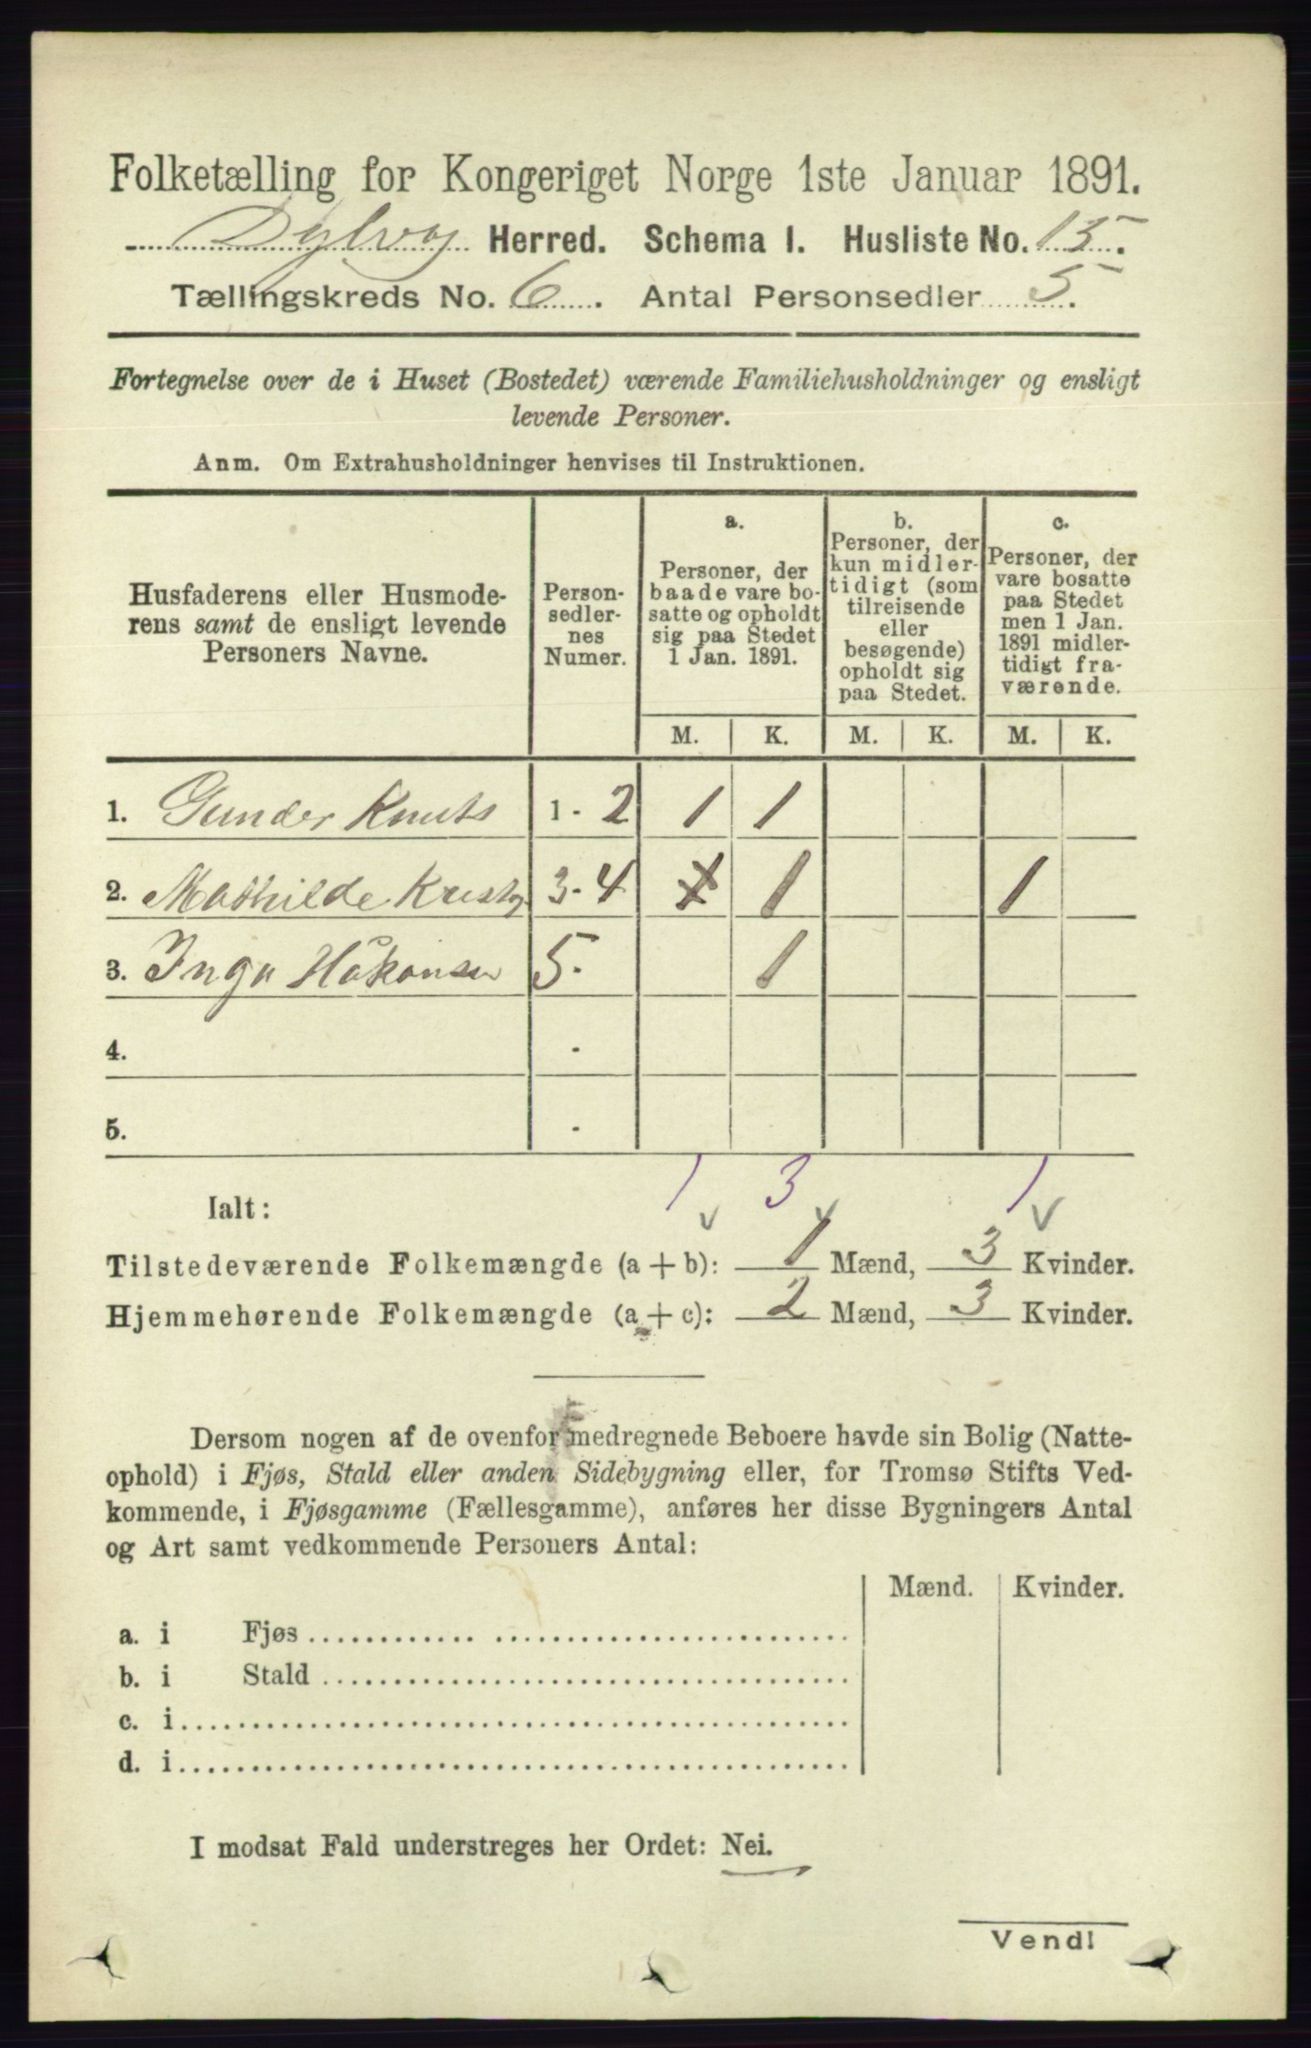 Folketælling for Kongeriget Norge 1ste Januar 1891.
Dybvåg Herred. Schema I. Husliste No. 15.
Tællingskreds No. 6. Antal Personsedler 5.
Fortegnelse over de i Huset (Bostedet) værende Familiehusholdninger og ensligt
levende Personer.
Anm. Om Extrahusholdninger henvises til Instruktionen.
Husfaderens eller Husmode-
rens samt de ensligt levende
Personers Navne.
Person-
sedler-
nes
Numer.
a.
Personer, der
baade vare bo-
satte og opholdt
sig paa Stedet
1 Jan. 1891.
b.
Personer, der
kun midler-
tidigt (som
tilreisende
eller
besøgende)
opholdt sig
paa Stedet.
c.
Personer, der
vare bosatte
paa Stedet
men 1 Jan.
1891 midler-
tidigt fra-
værende.
M. K. M. K. M. K.
1. Gunder Knuts 1 - 2 1 1
2. Mathilde 3 - 4 1 1
3. Inga Håkonsen 5 - 1
4. -
5. -
1 3 1
Ialt:
Tilstedeværende Folkemængde (a + b): 1 Mænd, 3 Kvinder.
Hjemmehørende Folkemængde (a + c): 2 Mænd, 3 Kvinder.
Dersom nogen af de ovenfor medregnede Beboere havde sin Bolig (Natte-
ophold) i Fjøs, Stald eller anden Sidebygning eller, for Tromsø Stifts Ved-
kommende, i Fjøsgamme (Fællesgamme), anføres her disse Bygningers Antal
og Art samt vedkommende Personers Antal:
Mænd. Kvinder.
a. i Fjøs
b. i Stald
c. i
d. i
I modsat Fald understreges her Ordet: Nei.
Vend!